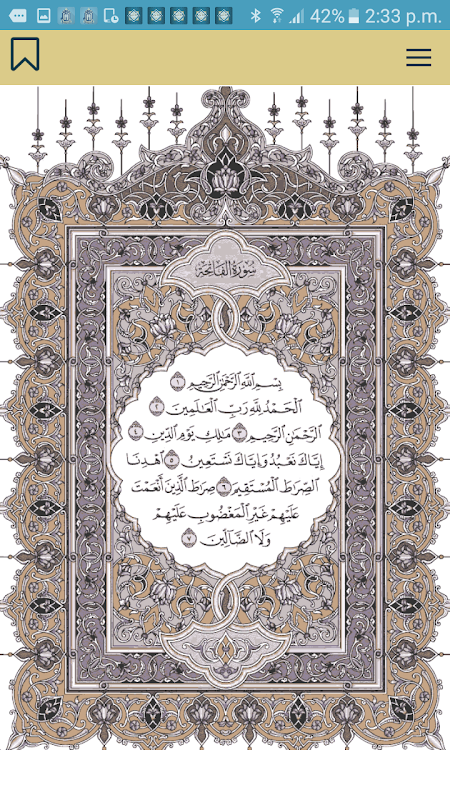 42% 2:33 p.m.
سُورَةُ الفَاتِحَةِ
بِسْمِ ٱللَّهِ ٱلرَّحْمَٰنِ ٱلرَّحِيمِ ١
ٱلْحَمْدُ لِلَّهِ رَبِّ ٱلْعَٰلَمِينَ ٢
ٱلرَّحْمَٰنِ ٱلرَّحِيمِ ٣ مَٰلِكِ يَوْمِ ٱلدِّينِ ٤
إِيَّاكَ نَعْبُدُ وَإِيَّاكَ نَسْتَعِينُ ٥ ٱهْدِنَا
ٱلصِّرَٰطَ ٱلْمُسْتَقِيمَ ٦ صِرَٰطَ ٱلَّذِينَ أَنْعَمْتَ
عَلَيْهِمْ غَيْرِ ٱلْمَغْضُوبِ عَلَيْهِمْ
وَلَا ٱلضَّآلِّينَ ٧